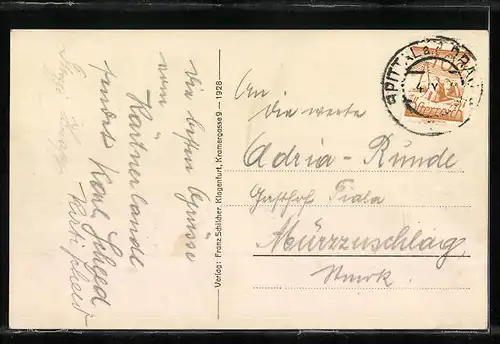 Die besten Grüsse
vom
Kärtnerlande
sendet Karl Scheed
Verlag: Franz Schilcher, Klagenfurt, Kramergasse 9 — 1928
SPITTAL a. d. DRAU
An
die werte
Adria - Runde
Gasthof Fiala
Mürzzuschlag,
Stmrk.